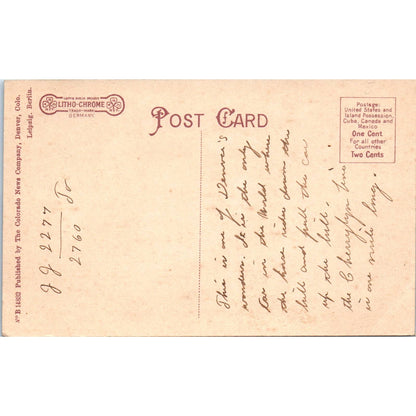 LITHO-CHROME
TRADE-MARK
GERMANY
POST CARD
Postage:
United States and
Island Possession,
Cuba, Canada and
Mexico
One Cent
For all other
Countries
Two Cents
No B 14932 Published by The Colorado News Company, Denver, Colo.
Leipzig, Berlin.
JJ 2277
To
2760
This is one of Denver's
wonders. It is the only
car in the World where
the horse rides down the
hill and pull the car
up the hill.
the Cherrylyn line
is one mile long.